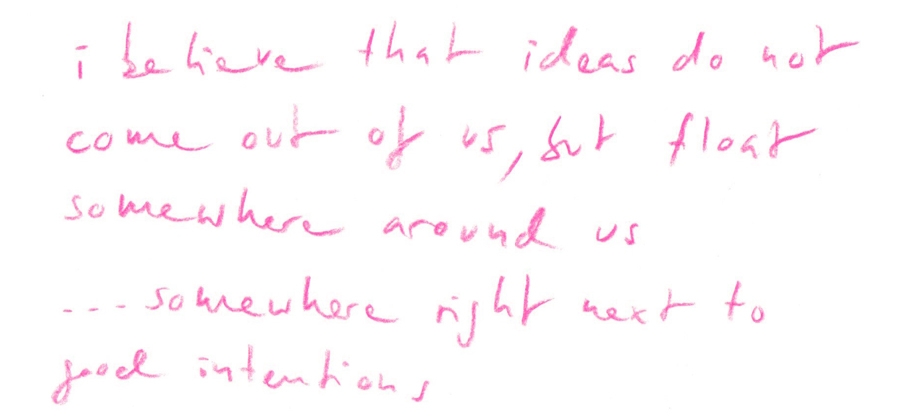 i believe that ideas do not
come out of us, but float
somewhere around us
...somewhere right next to
good intentions